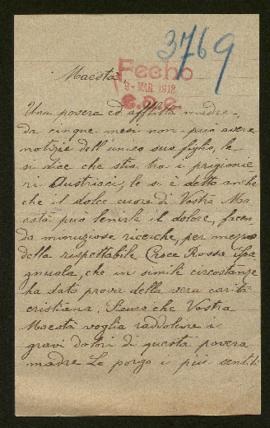 3769
Fecho
9-MAR. 1918
Maestà,
Una povera ed afflitta madre,
da cinque mesi non può avere
notizie dell'unico suo figlio, le
si dice che stia tra i prigionie
ri Austriaci, le si è detto anche
che il dolce cuore di Vostra Ma
està può lenirle il dolore, facen
do minuziose ricerche, per mezzo
della rispettabile Croce Rossa Spa
gnuola, che in simile circostanze
ha dato prova della vera carità
cristiana. Spero che Vostra
Maestà voglia raddolcire i
gravi dolori di questa povera
madre Le porgo i più sentiti